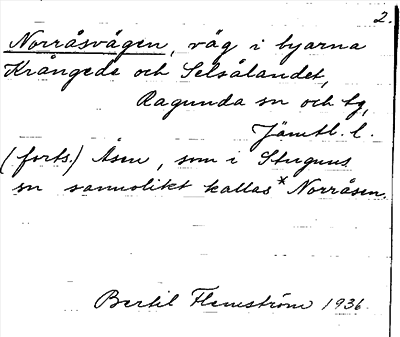 2.
Norråsvägen, väg i byarna
Krångede och Selsålandet,
Ragunda sn och tg,
Jämtl. l.
(forts.) Åsen, som i Stuguns
sn sannolikt kallas *Norråsen.
Bertil Flemström 1936.